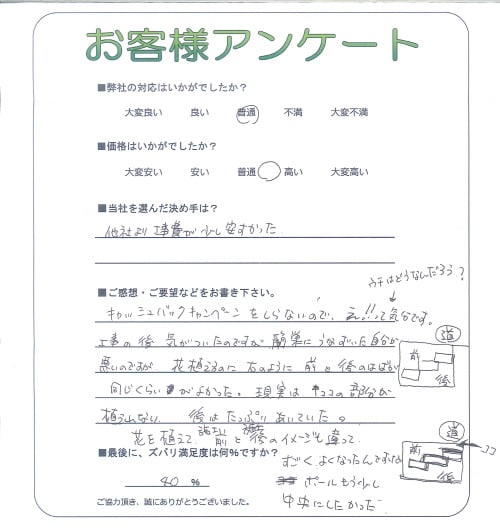 お客様アンケート
■弊社の対応はいかがでしたか？
大変良い 良い 普通 不満 大変不満
■価格はいかがでしたか？
大変安い 安い 普通 高い 大変高い
■当社を選んだ決め手は？
他社より工事費が少し安すかった
■ご感想・ご要望などをお書き下さい。
ウチはどうなんだろう？
キャッシュバックキャンペーンをしらないので、え!!って気分です。
工事の後気がついたのですが、簡単にうなずいた自分が
悪いのですが 花植えるのに右のように前と後のはばが
同じくらいがよかった。現実はココの部分が
植えれない 後はたっぷりあいていた。
花を植えて 前と後のイメージも違って
道
前
後
道
前
後
ココ
■最後に、ズバリ満足度は何%ですか？
40 %
よくなったんですが
ポールもう少し
中央にしたかった
ご協力頂き、誠にありがとうございました。